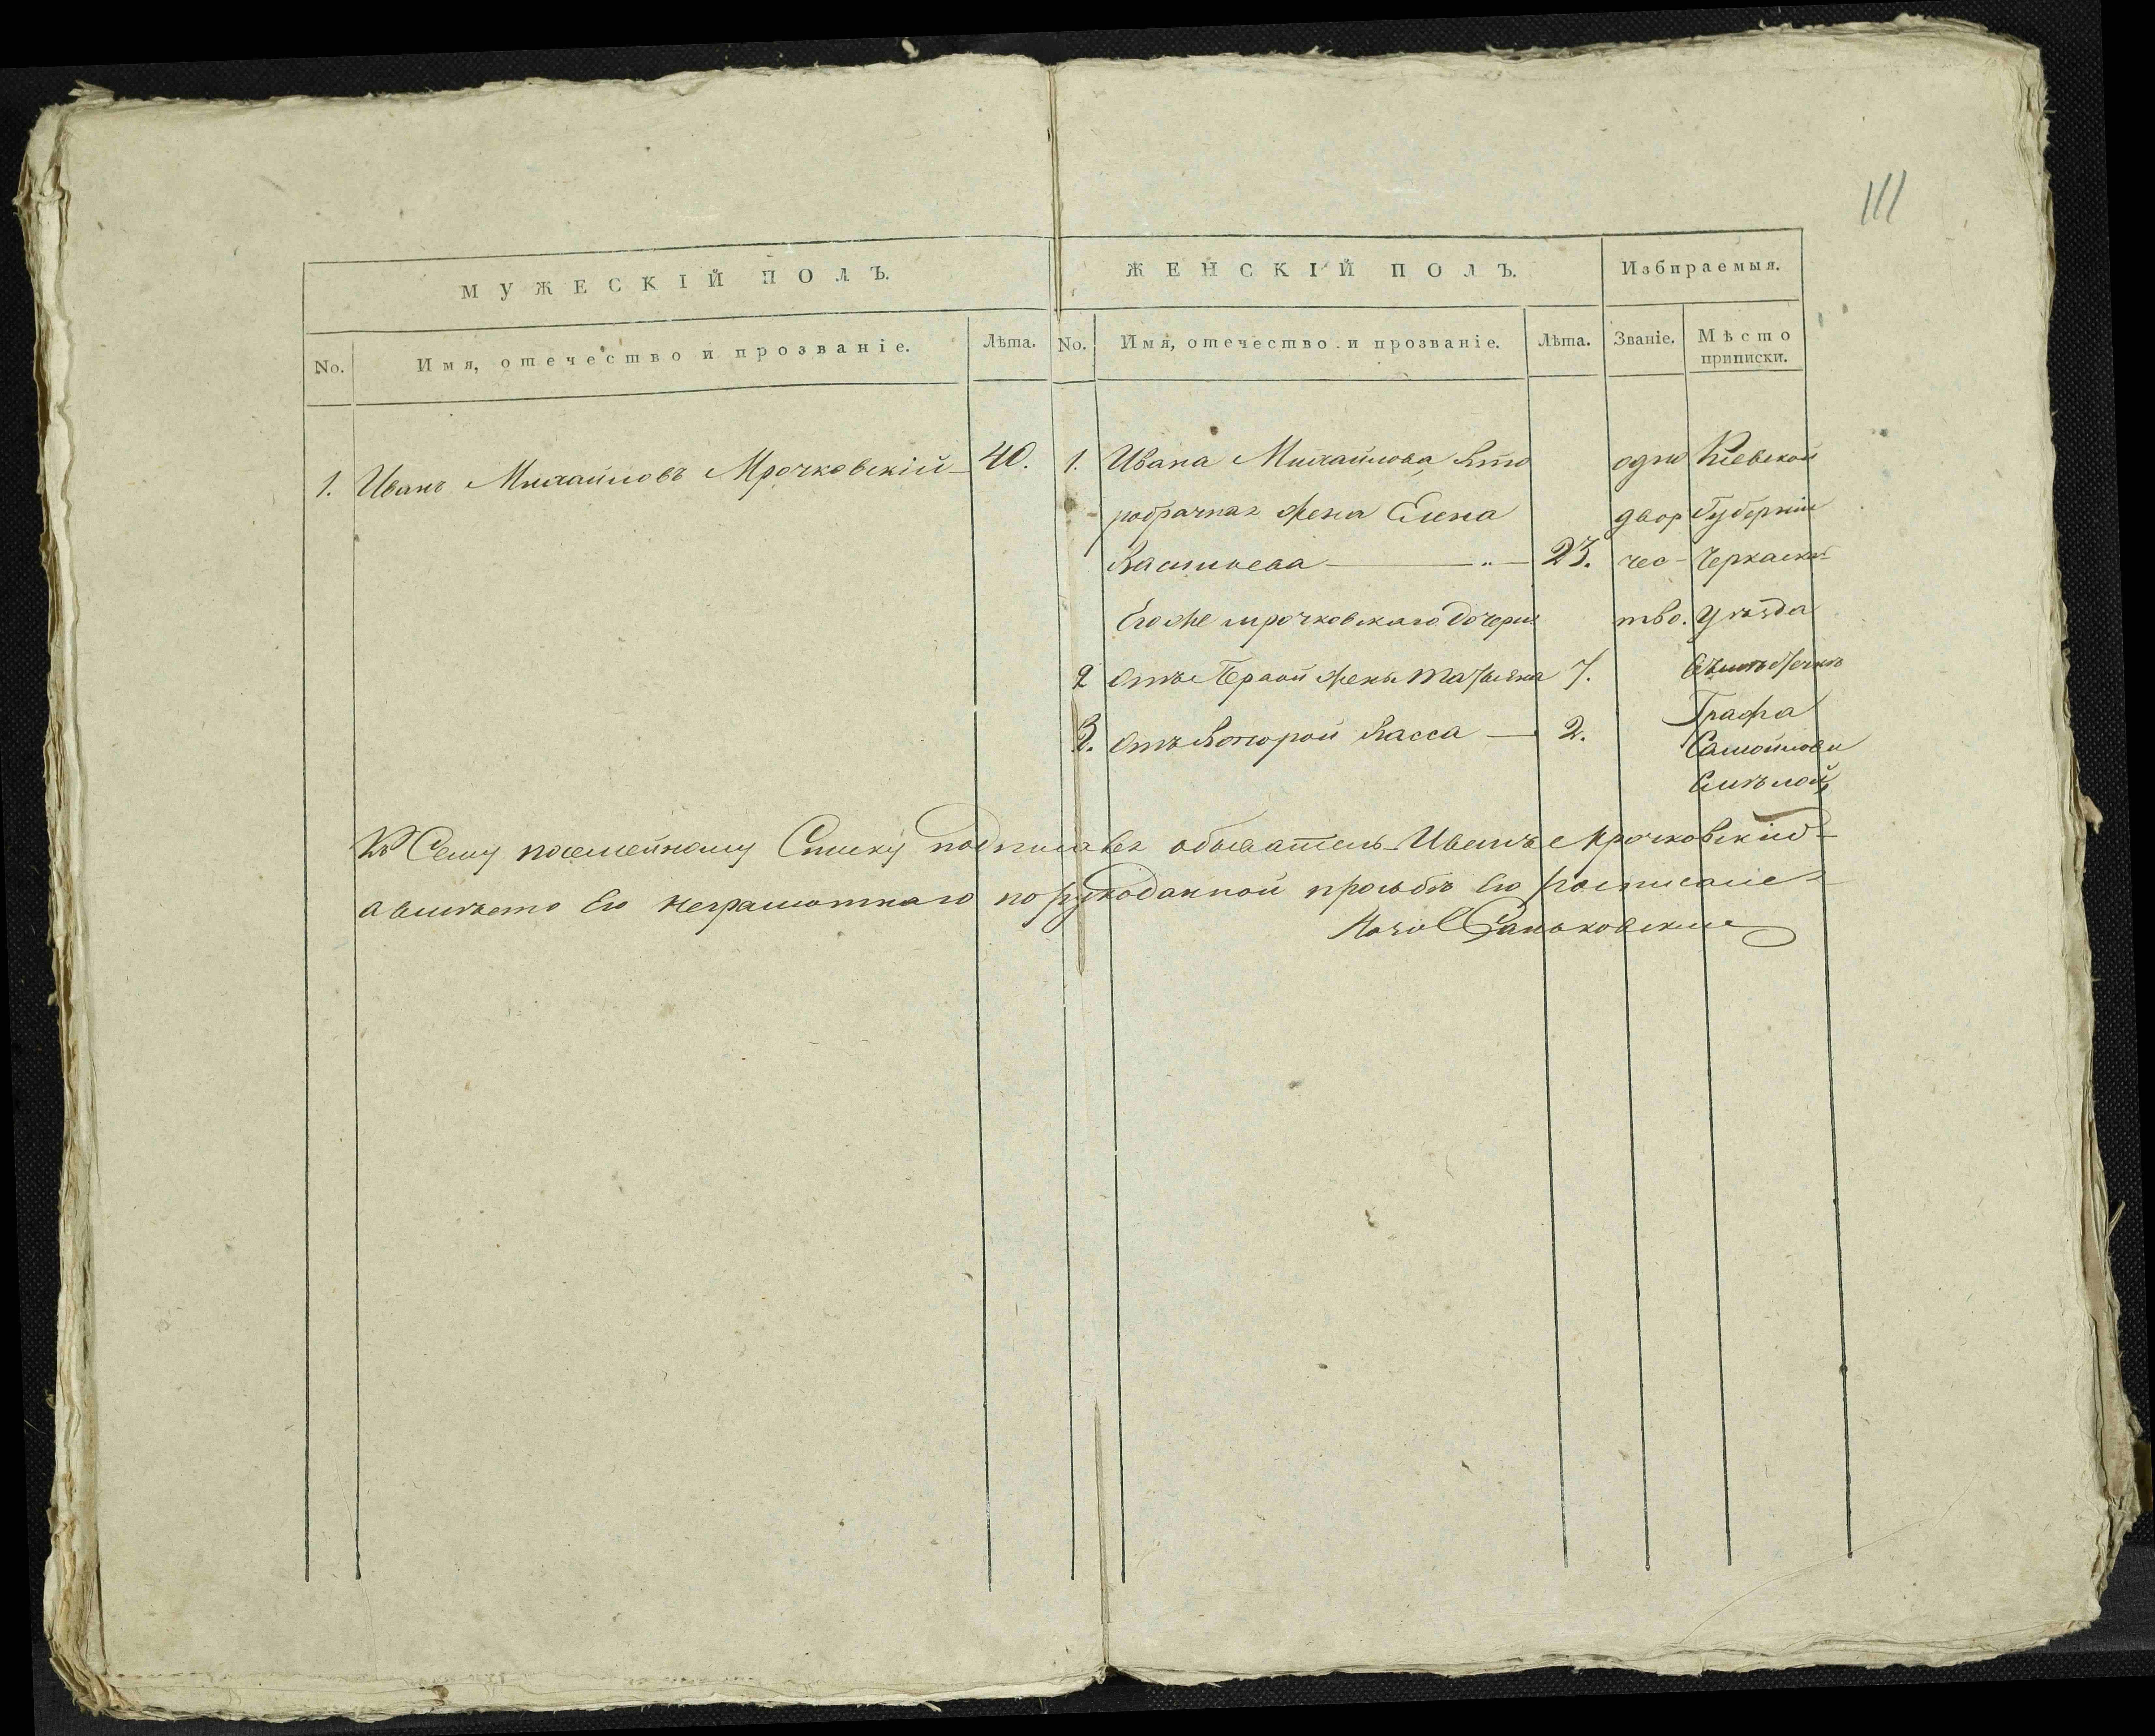 111
МУЖЕСКІЙ ПОЛЪ.
ЖЕНСКІЙ ПОЛЪ.
Избираемыя.
No.
Имя, отечество и прозваніе.
Лѣта.
No.
Имя, отечество и прозваніе.
Лѣта.
Званіе.
Мѣсто
приписки.
1. Иванъ Михайловъ Мрочковскій 40.
1. Ивана Михайлова вто
робрачная жена Елена
Васильева 23.
Егоже мрочковскаго дочери
2 Отъ Первой жены татьяна 7.
3. Отъ второй Васса 2.
одно
двор
чес-
тво.
Кіевской
Губерніи
Черкаски
уѣзда
Графа
Самойлова
Къ Сему посемейному Списку подписався обыватель Иванъ Мрочковскій
авмѣсто Его неграмотнаго порукоданной прозьбѣ Его